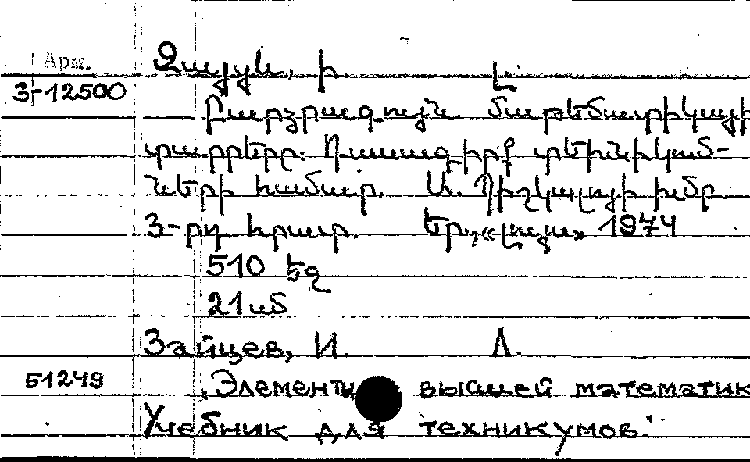 Арм.
3-12500
Զայցև, Ի. Լ.
Բարձրագույն մաթեմատիկայի
տարրերը. Դասագիրք տեխնիկում-
ների համար. Ա. խմբ
3-րդ հրատ. Եր., «Լույս» 1974
510 եջ
21 սմ
Зайцев, И. Л.
51249
Элементы высшей математик
Учебник для техникумов.